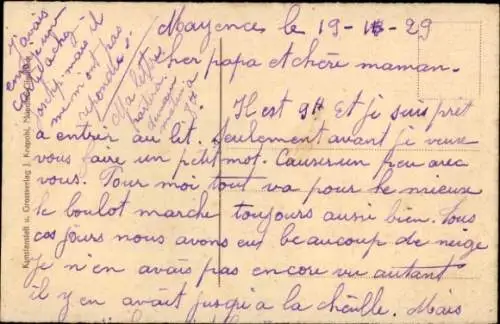 Mayence le 19-1-29
Cher papa et chère maman.
Il est 9h Et je suis prèt
a entrer au lit. Seulement avant je veux
vous faire un ptit mot. Causer un peu avec
vous. Pour moi tout va pour le mieux
le boulot marche toujours aussi bien. Tous
ces jours nous avons eu beaucoup de neige
Je n'en avais pas encore vu autant
il y en avait jusqu'a la chëille. Mais
J'avais
mais il
m'ont pas
répondu.
Ma lettre
partira
demain
matin
Kunstanstalt u. Grossverlag J. Krapohl,